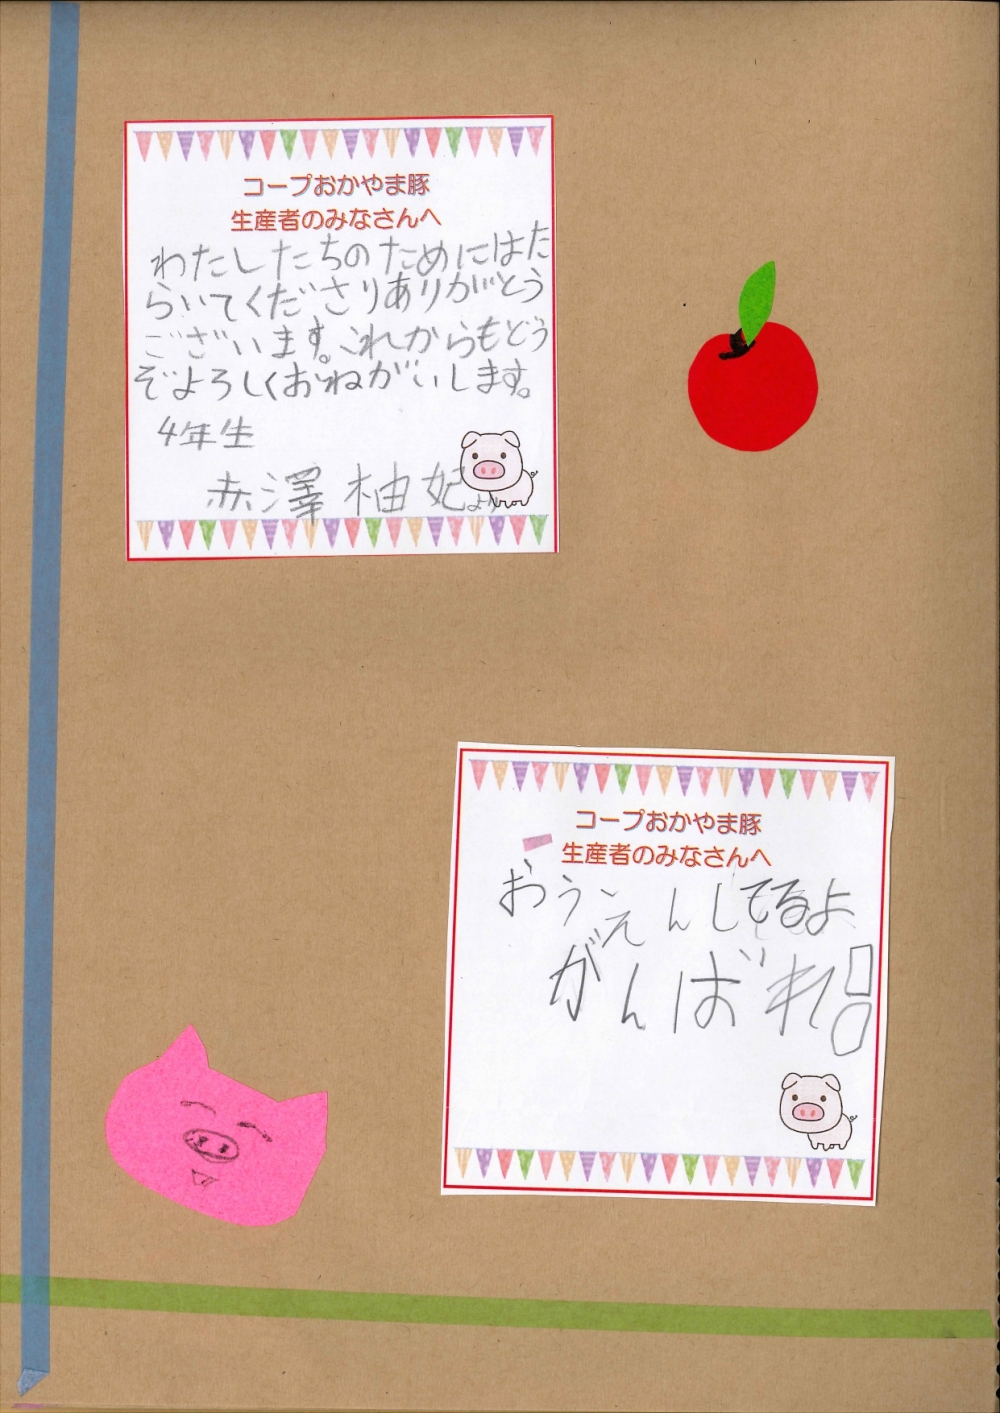 コープおかやま豚
生産者のみなさんへ
わたしたちのためにはた
らいてくださりありがとう
ございます。これからもどう
ぞよろしくおねがいします。
4年生
赤澤 柚妃より
コープおかやま豚
生産者のみなさんへ
おうえんしてるよ
がんばれ!